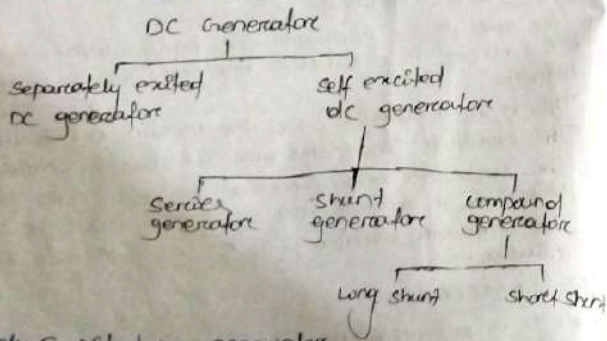 DC Generatore
Separately exited
DC generatore
Self excited
dc genereatore
Series
generatore
shunt
genereatore
compound
generatore
Long shunt
short shunt